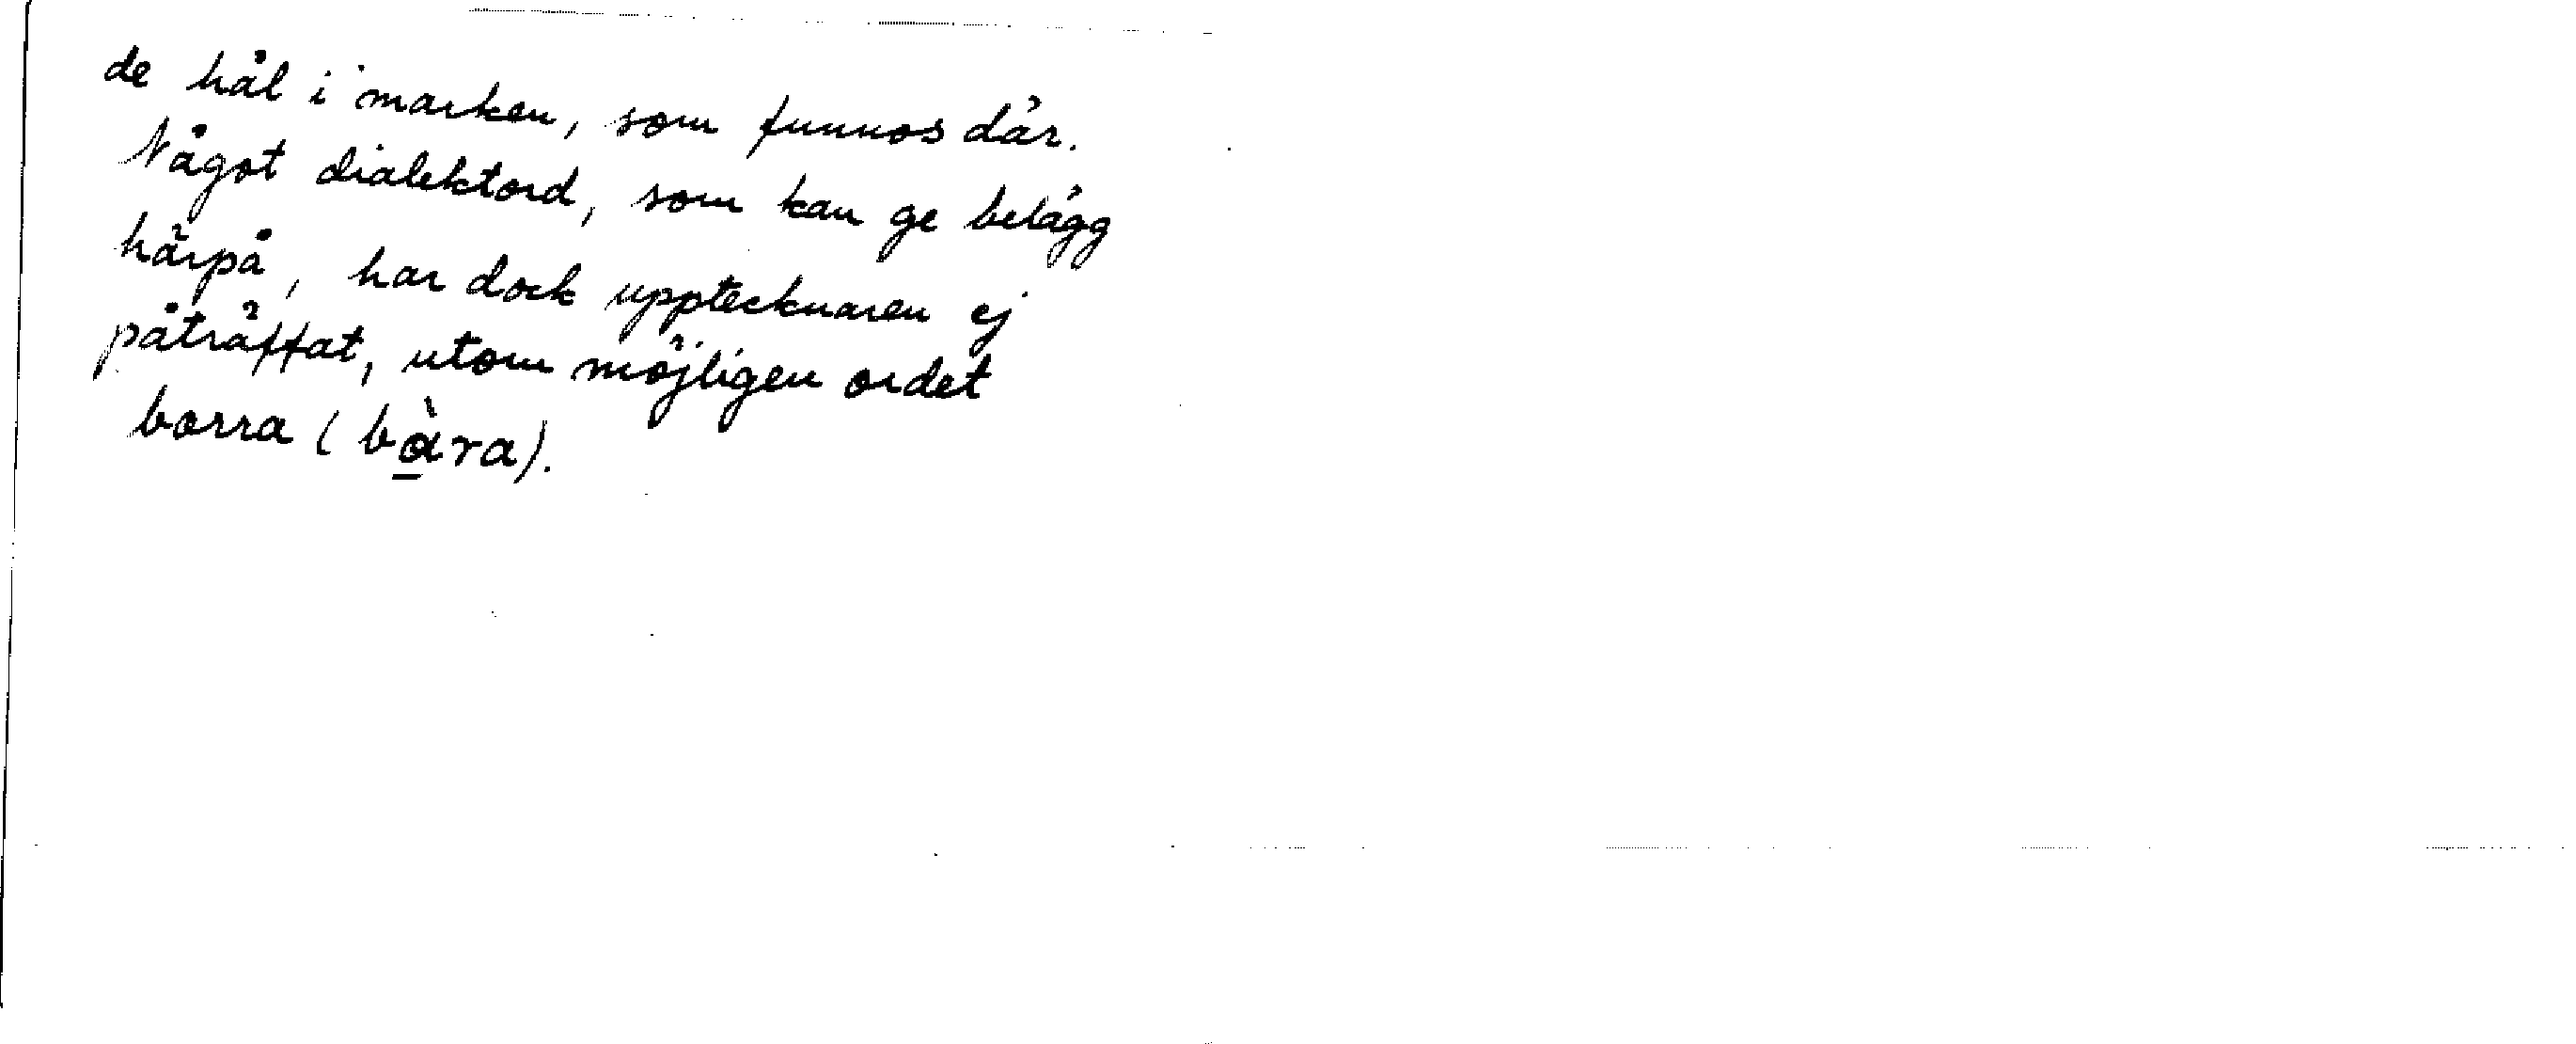 de hål i marken, som funnos där.
Något dialektord, som kan ge belägg
härpå, har dock upptecknaren ej
påträffat, utom möjligen ordet
borra (bàra).